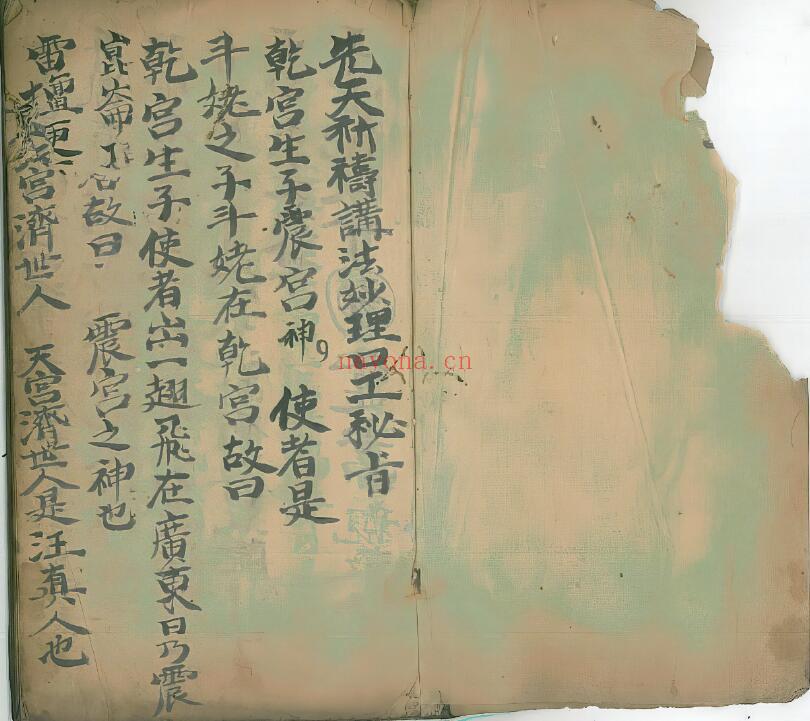 先天祈禱講法妙理工秘旨
乾宮生子震宮神 使者是
斗姥之子斗姥在乾宮故曰
乾宮生子使者出一翅飛在廣東乃震
崑崙 故曰 震宮之神也
雷壇 宮濟世人 天宮濟世人是汪真人也
nayona.cn